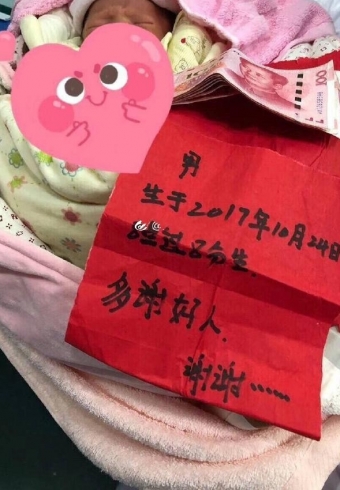 男
生于2017年10月24日
8点过8分生.
多谢好人.
谢谢……
100